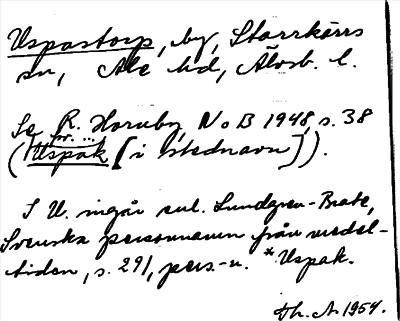 Uspastorp, by, Starrkärrs
sn, Ale hd, Älvsb. l.
Se R. Hornby, NoB 1948, s. 38
fvn. ...
(Uspak [i Stednavn]).
I U. ingår enl. Lundgren-Brate,
Svenska personnamn från medel-
tiden, s. 291, pers.-n. *Uspak.
Th. A. 1954.